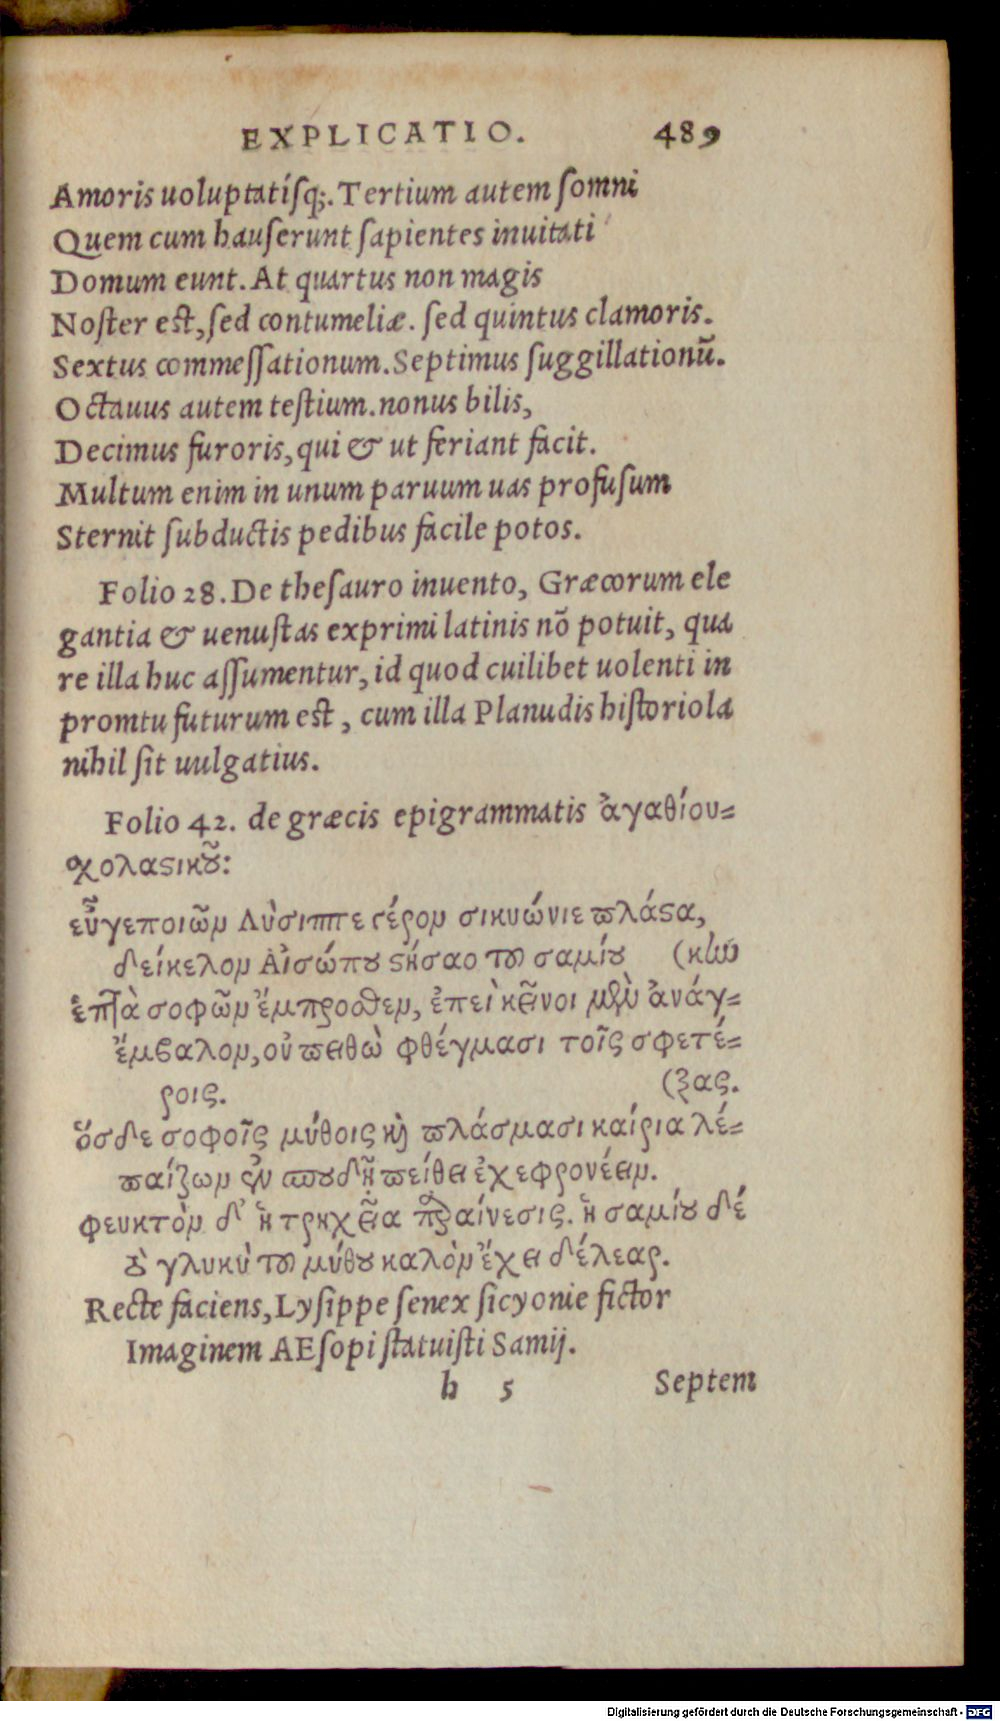 EXPLICATIO. 489
Amoris uoluptatísq;. Tertium autem ſomni
Quem cum hauſerunt ſapientes inuitati
Domum eunt. At quartus non magis
Noſter est, ſed contumeliæ. ſed quintus clamoris.
Sextus commeſſationum. Septimus ſuggillationū.
Octauus autem teſtium. nonus bilis,
Decimus furoris, qui & ut feriant facit.
Multum enim in unum paruum uas profuſum
Sternit ſubductis pedibus facile potos.
Folio 28. De theſauro inuento, Græcorum ele
gantia & uenuſtas exprimi latinis nō potuit, qua
re illa huc aſſumentur, id quod cuilibet uolenti in
promtu futurum est, cum illa Planudis hiſtoriola
nihil ſit uulgatius.
Folio 42. de græcis epigrammatis ἀγαθίου-
σχολαϛικοῦ:
εὖγε ποιῶν Λύσιππε γέρον σικυώνιε πλάϛα,
δείκελον Αἰσώπου ϛήσαο τοῦ σαμίου (κῶν
ἑπτὰ σοφῶν ἔμπροσθεν, ἐπεὶ κεῖνοι μὲν ἀνάγ-
ἔμβαλον, οὐ πειθὼ φθέγμασι τοῖς σφετέ-
ροις. (ξας.
ὅσδε σοφοῖς μύθοις καὶ πλάσμασι καίρια λέ-
παίζων ἐν σπουδῇ πείθει ἐχεφρονέειν.
φευκτὸν δ' ἡ τρηχεῖα παραίνεσις. ἡ σαμίου δέ
τὸ γλυκὺ τοῦ μύθου καλὸν ἔχει δέλεαρ.
Recte faciens, Lyſippe ſenex ſicyonie fictor
Imaginem AEſopi ſtatuiſti Samij.
h 5 Septem
Digitalisierung gefördert durch die Deutsche Forschungsgemeinschaft - DFG